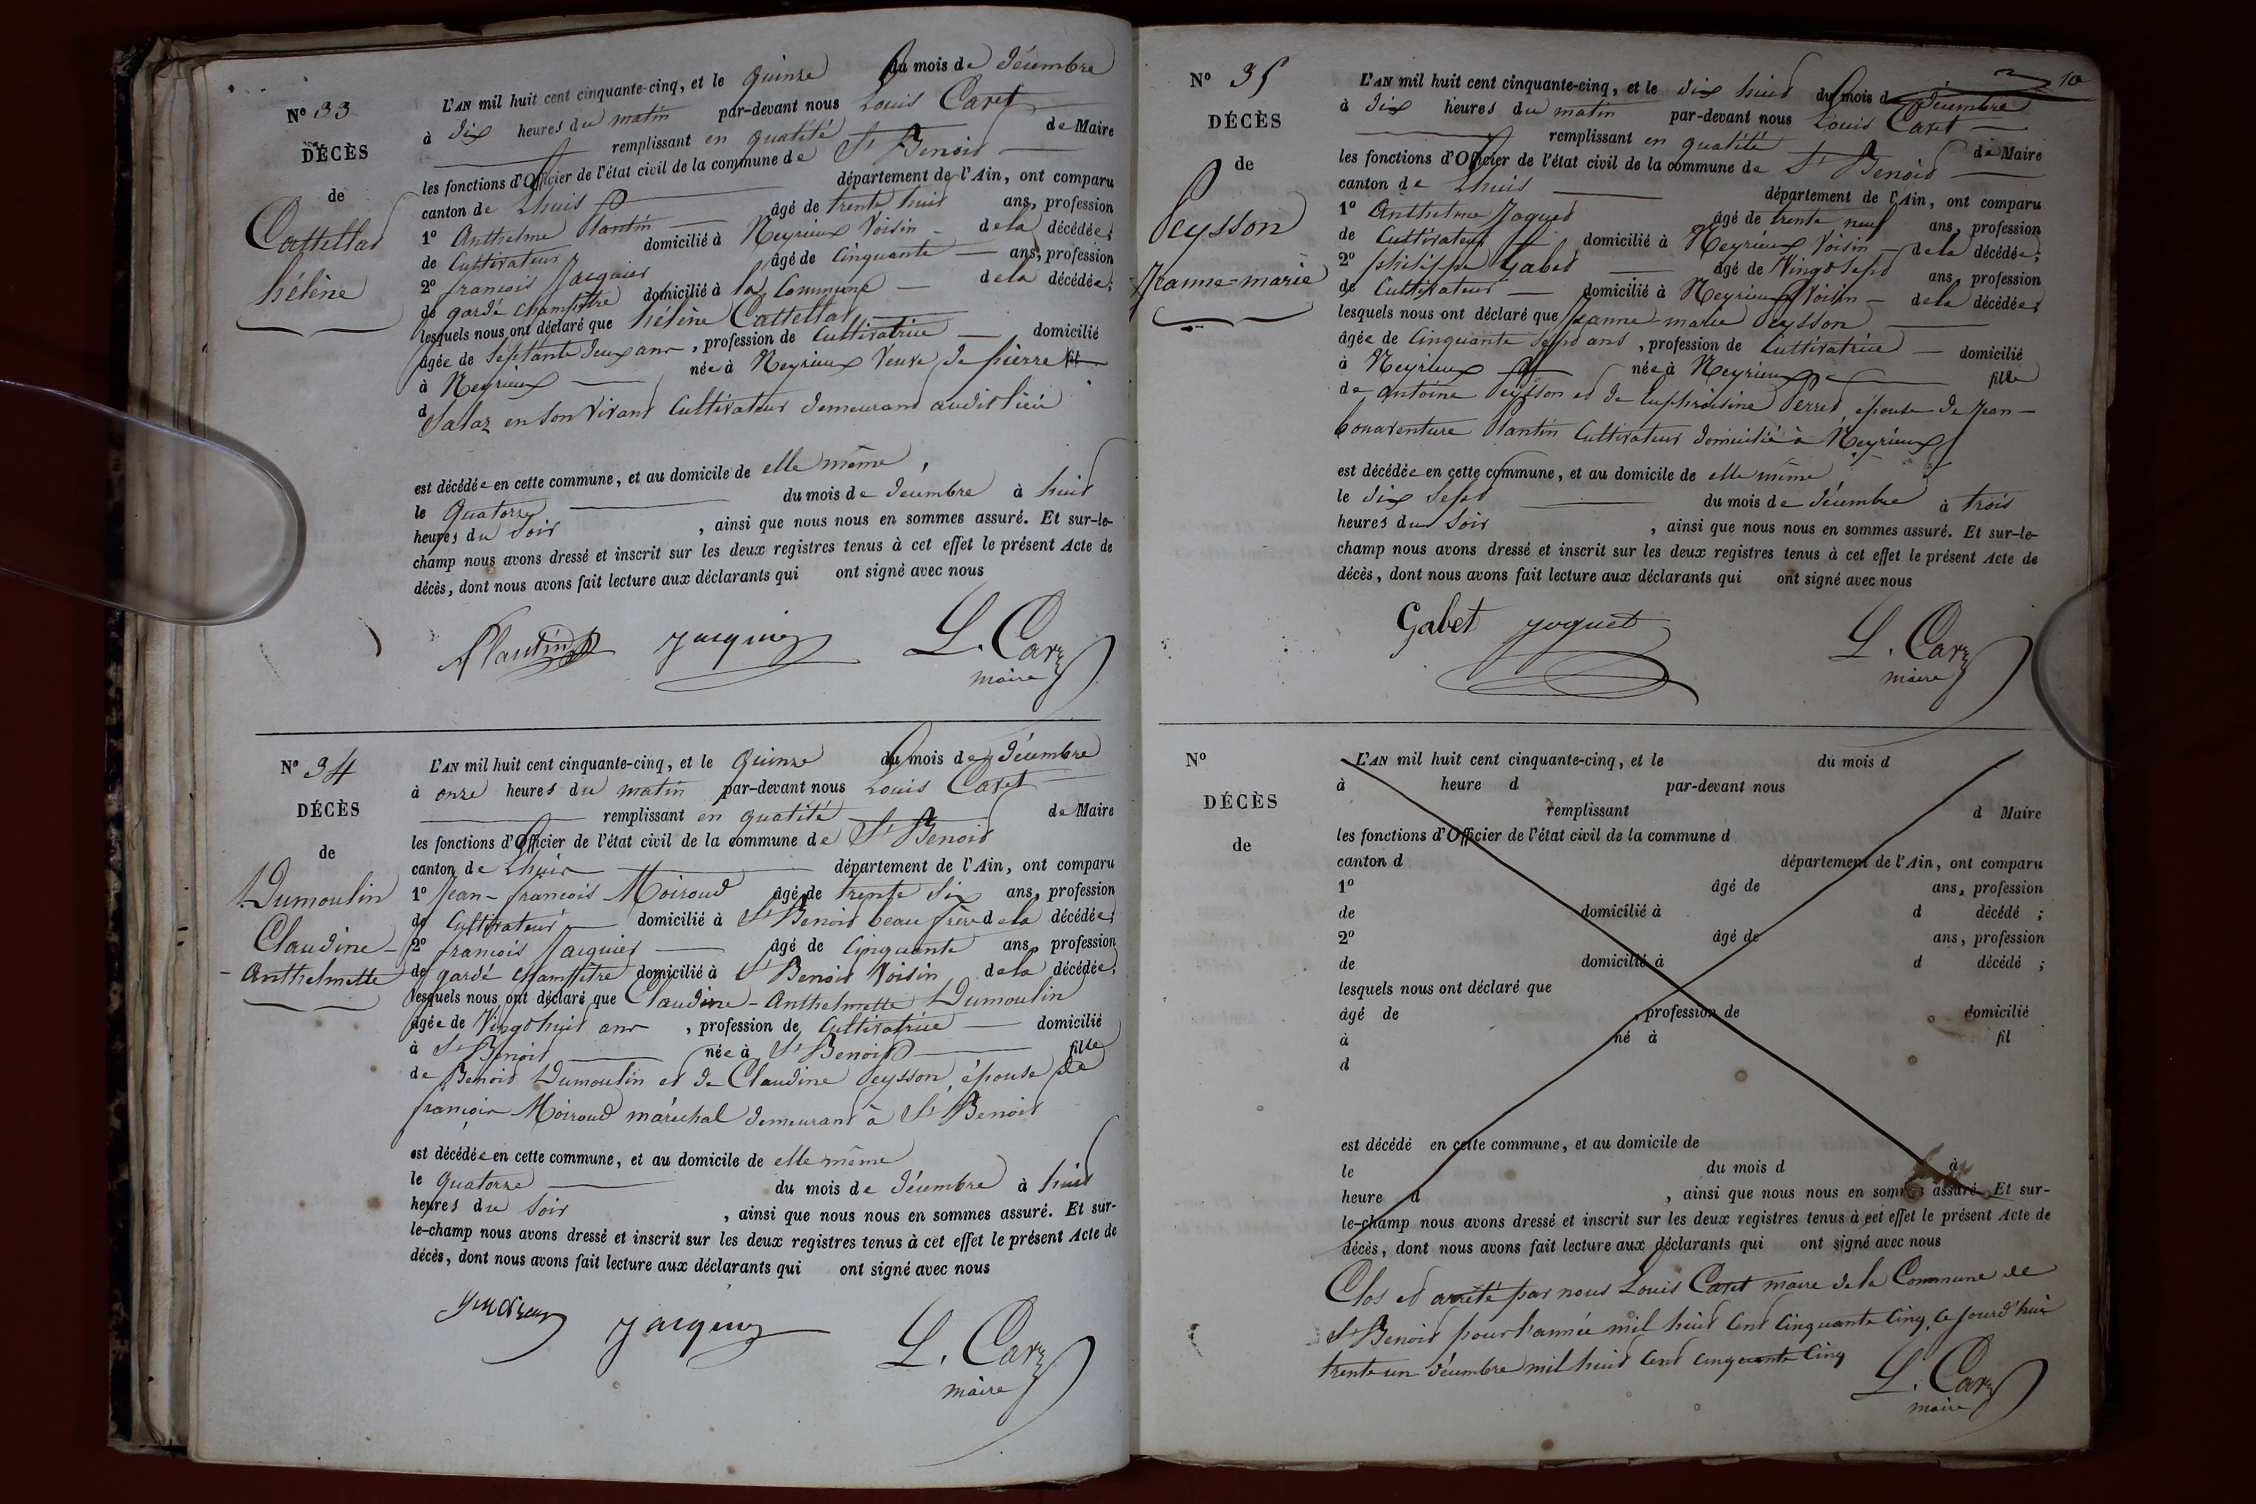 N° 33
DÉCÈS
de
Cattellat
hélène
L'AN mil huit cent cinquante-cinq, et le quinze du mois de décembre
à dix heures du matin par-devant nous Louis Caret
remplissant en qualité de Maire
les fonctions d'Officier de l'état civil de la commune de St Benoit
canton de Lhuis département de l'Ain, ont comparu
1° Anthelme Plantin âgé de trente huit ans, profession
de Cultivateur domicilié à Neyrieux Voisin de la décédée;
2° françois Jacquier âgé de Cinquante ans, profession
de garde champêtre domicilié à la Commune de la décédée;
lesquels nous ont déclaré que hélène Cattellat
âgée de septante deux ans, profession de Cultivatrice domicilié
à Neyrieux née à Neyrieux Veuve de pierre fil
d Salaz en son vivant Cultivateur demeurant audit lieu
est décédée en cette commune, et au domicile de elle même,
le quatorze du mois de décembre à huit
heures du soir, ainsi que nous nous en sommes assuré. Et sur-le-
champ nous avons dressé et inscrit sur les deux registres tenus à cet effet le présent Acte de
décès, dont nous avons fait lecture aux déclarants qui ont signé avec nous
Plantin Jacquier L. Caret
maire
N° 34
DÉCÈS
de
Dumoulin
Claudine-
-Anthelmette
L'AN mil huit cent cinquante-cinq, et le quinze du mois de décembre
à onze heures du matin par-devant nous Louis Caret
remplissant en qualité de Maire
les fonctions d'Officier de l'état civil de la commune de St Benoit
canton de Lhuis département de l'Ain, ont comparu
1° Jean-françois Moiroud âgé de trente six ans, profession
de Cultivateur domicilié à St Benoit beau frère de la décédée;
2° françois Jacquier âgé de Cinquante ans, profession
de garde champêtre domicilié à St Benoit Voisin de la décédée;
lesquels nous ont déclaré que Claudine-Anthelmette Dumoulin
âgée de Vingt huit ans, profession de Cultivatrice domicilié
à St Benoit née à St Benoit fille
de Benoit Dumoulin et de Claudine Peysson, épouse de
françois Moiroud maréchal demeurant à St Benoit
est décédée en cette commune, et au domicile de elle même
le quatorze du mois de décembre à huit
heures du soir, ainsi que nous nous en sommes assuré. Et sur-
le-champ nous avons dressé et inscrit sur les deux registres tenus à cet effet le présent Acte de
décès, dont nous avons fait lecture aux déclarants qui ont signé avec nous
Jacquier L. Caret
maire
10
N° 35
DÉCÈS
de
Peysson
Jeanne-marie
L'AN mil huit cent cinquante-cinq, et le dix huit du mois de décembre
à dix heures du matin par-devant nous Louis Caret
remplissant en qualité de Maire
les fonctions d'Officier de l'état civil de la commune de St Benoit
canton de Lhuis département de l'Ain, ont comparu
1° Anthelme Joguet âgé de trente neuf ans, profession
de Cultivateur domicilié à Neyrieux Voisin de la décédée;
2° philippe Gabet âgé de Vingt sept ans, profession
de Cultivateur domicilié à Neyrieux Voisin de la décédée;
lesquels nous ont déclaré que Jeanne-marie Peysson
âgée de Cinquante sept ans, profession de Cultivatrice domicilié
à Neyrieux née à Neyrieux fille
de antoine Peysson et de Euphroisine Perret, épouse de Jean-
bonaventure Plantin Cultivateur domicilié à Neyrieux
est décédée en cette commune, et au domicile de elle même
le dix sept du mois de décembre à trois
heures du soir, ainsi que nous nous en sommes assuré. Et sur-le-
champ nous avons dressé et inscrit sur les deux registres tenus à cet effet le présent Acte de
décès, dont nous avons fait lecture aux déclarants qui ont signé avec nous
Gabet Joguet L. Caret
maire
N°
DÉCÈS
de
L'AN mil huit cent cinquante-cinq, et le du mois d
à heure d par-devant nous
remplissant d Maire
les fonctions d'Officier de l'état civil de la commune d
canton d département de l'Ain, ont comparu
1° âgé de ans, profession
de domicilié à d décédé ;
2° âgé de ans, profession
de domicilié à d décédé ;
lesquels nous ont déclaré que
âgé de , profession de domicilié
à né à fil
d
est décédé en cette commune, et au domicile de
le du mois d à
heure d , ainsi que nous nous en sommes assuré. Et sur-
le-champ nous avons dressé et inscrit sur les deux registres tenus à cet effet le présent Acte de
décès, dont nous avons fait lecture aux déclarants qui ont signé avec nous
Clos et arrêté par nous Louis Caret maire de la Commune de
St Benoit pour l'année mil huit Cent Cinquante Cinq, ce jourd'hui
trente un décembre mil huit Cent cinquante Cinq
L. Caret
maire